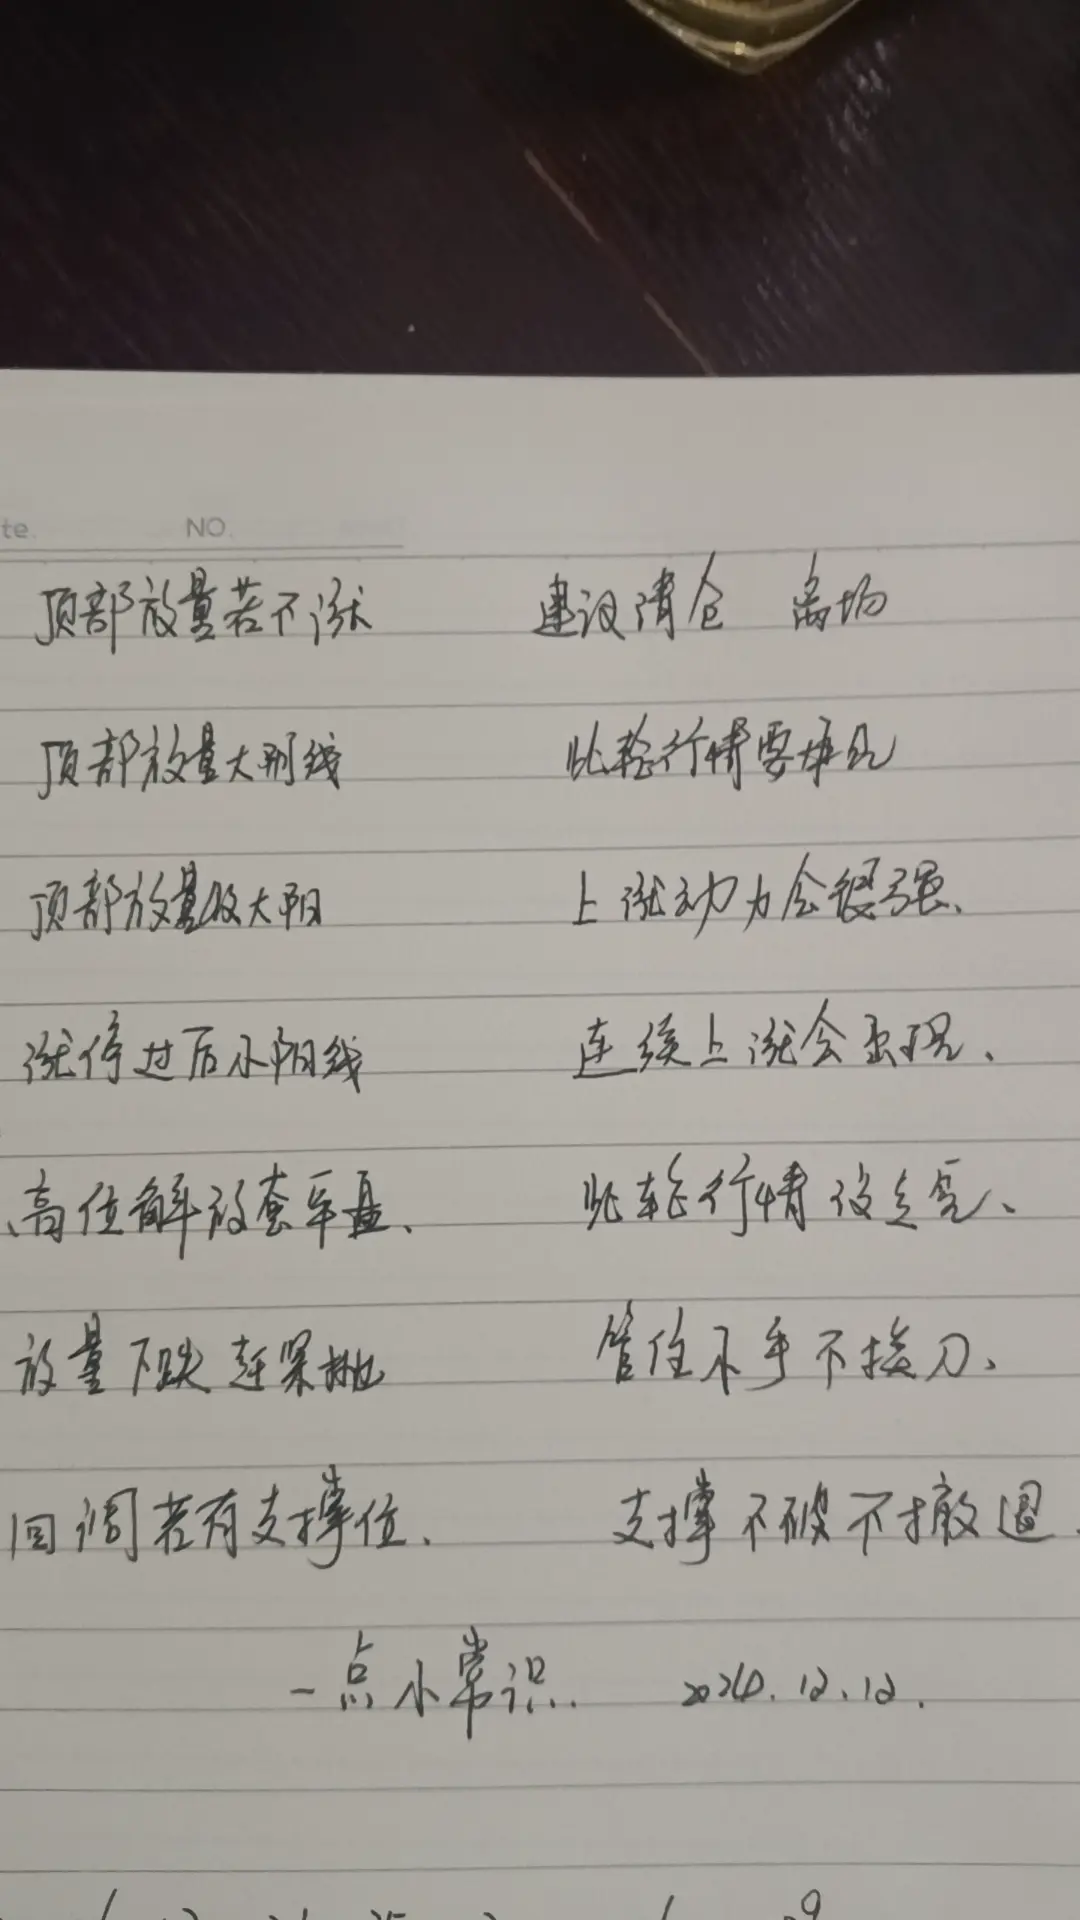 te. NO.
顶部放量若不涨 建议清仓 离场
顶部放量大阴线 此轮行情要难见
顶部放量收大阳 上涨动力会很强、
涨停过后小阳线 连续上涨会出现、
高位解放套牢盘、 此轮行情没走完、
放量下跌赶紧抛 管住小手不接刀、
回调若有支撑位、 支撑不破不撤退
一点小常识. 2024.12.12.